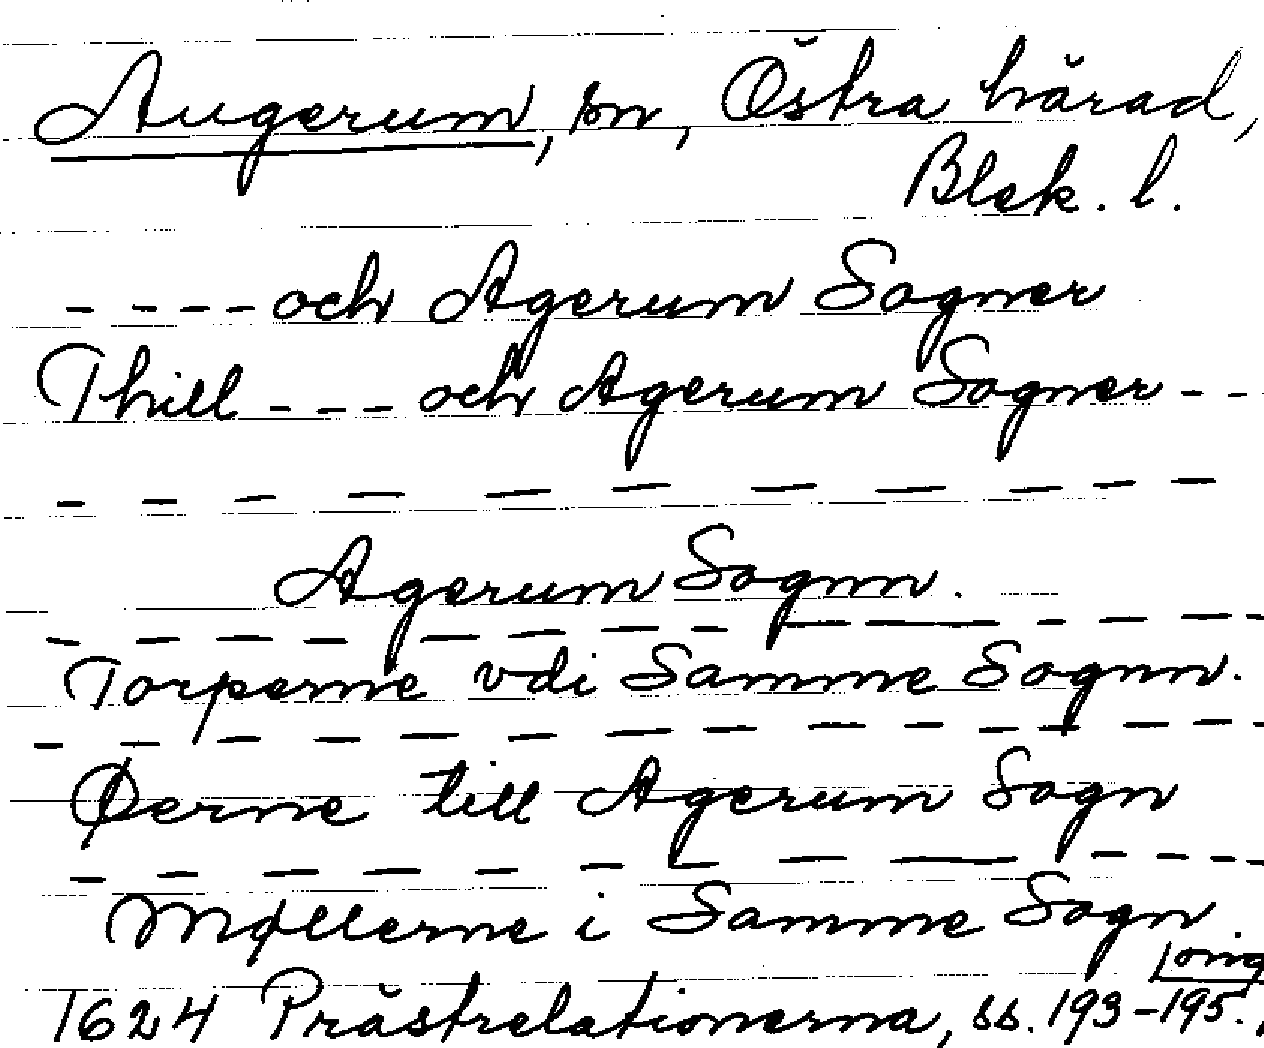 Augerum, sn, Östra härad,
Blek. l.
- - - - och Agerum Sogner
Thill - - - och Agerum Sogner - -
- - - - - - - - - -
Agerum Sognn.
- - - - - - - - - - - - -
Torperne vdi Samme Sognn.
- - - - - - - - - - - - -
Øerne till Agerum Sogn
- - - - - - - - - - - -
Møllerne i Samme Sogn.
orig
1624 Prästrelationerna, ss. 193-195.,